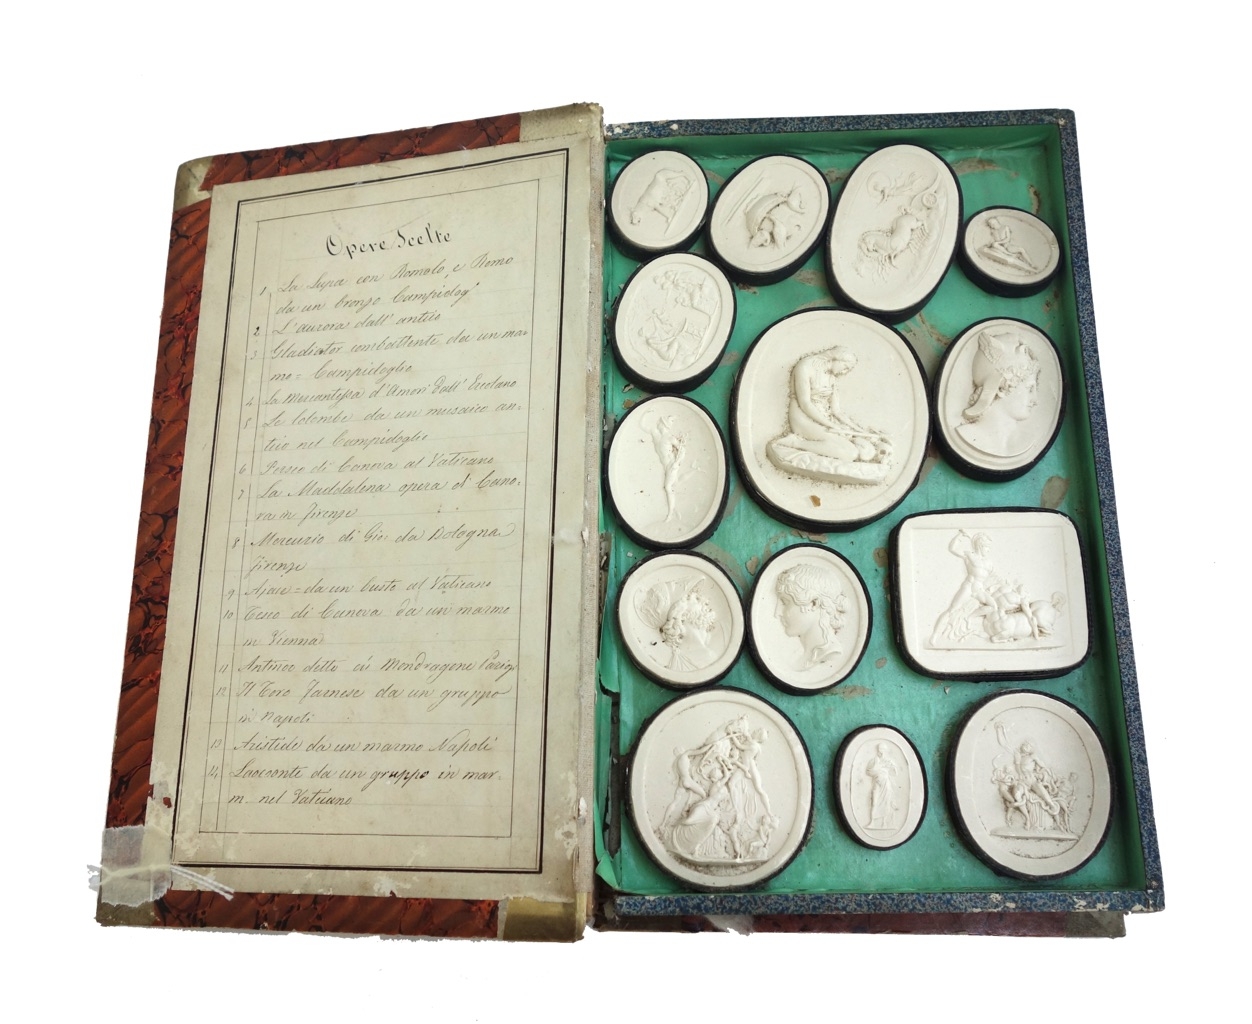 Opere Scelte
1 La Lupa con Romolo, e Remo
da un bronzo Campidog.º
2 L'aurora dall'antico
3 Gladiator combattente da un mar-
mo = Campidoglio
4 La Mercantessa d'Amori dall'Ercolano
5 Le Colombe da un musaico an-
tico nel Campidoglio
6 Perseo di Canova al Vaticano
7 La Maddalena opera di Cano-
va in firenze
8 Mercurio di Gio: da Bologna
firenze
9 Ajace = da un busto al Vaticano
10 Teseo di Canova da un marmo
in Vienna
11 Antinoo detto di Mondragone Parigi
12 Il Toro Farnese da un gruppo
in Napoli
13 Aristide da un marmo Napoli
14 Laocoonte da un gruppo in mar-
m. nel Vaticano